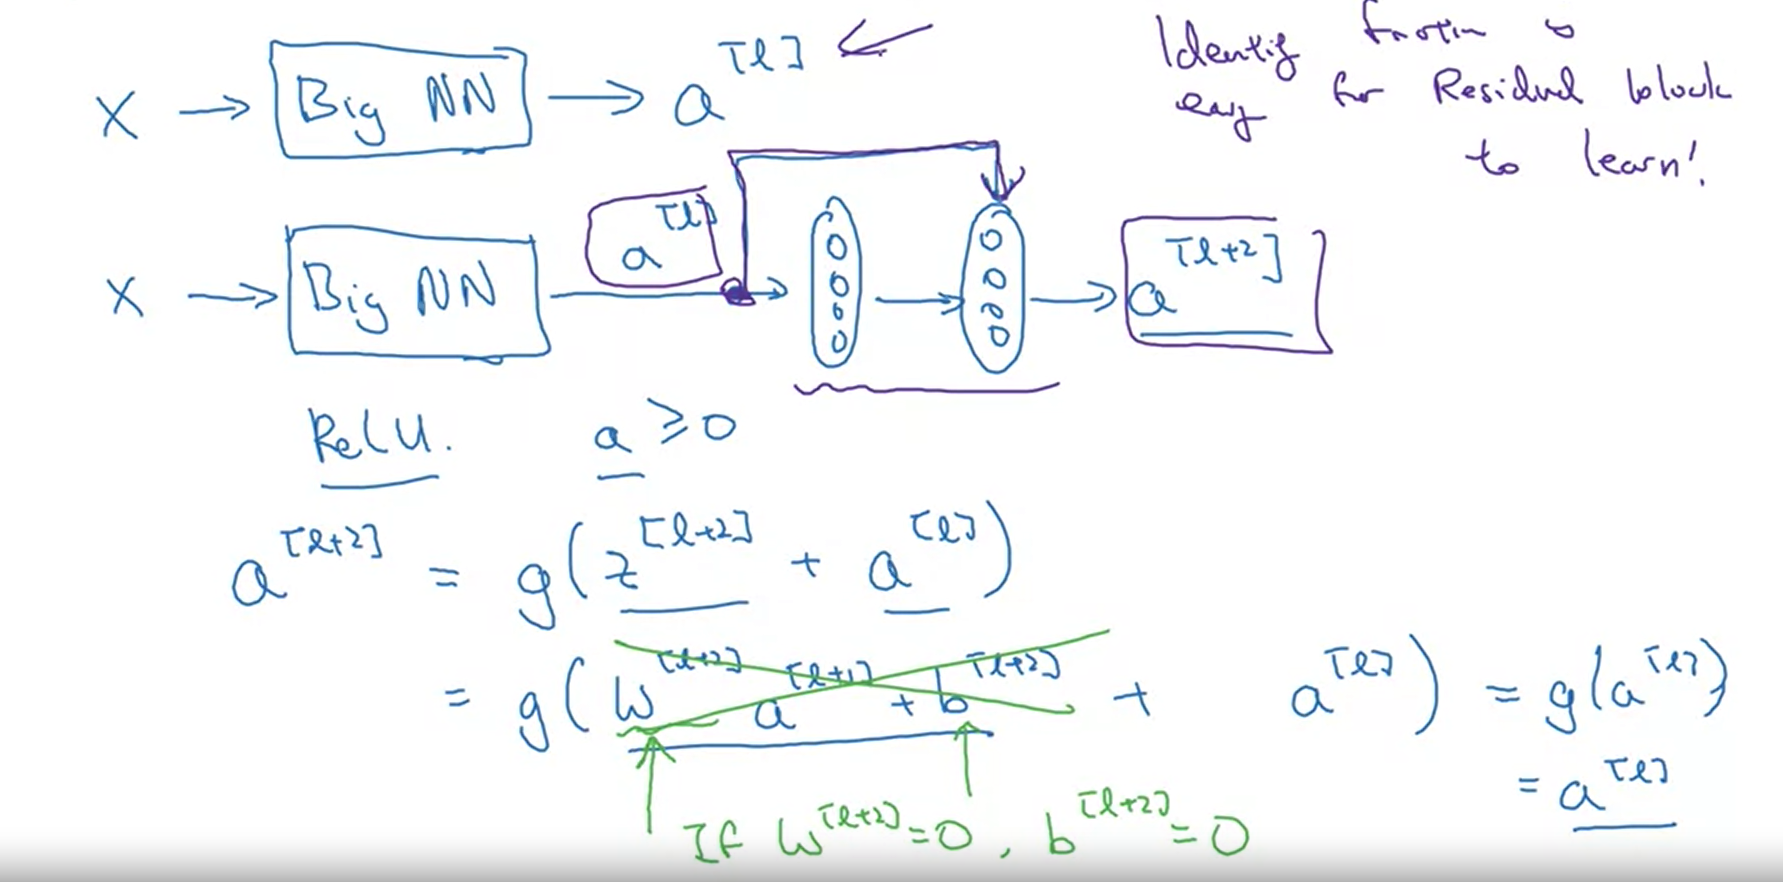 X → Big NN → a^[l] ←
Identity function is
easy for Residual block
to learn!
X → Big NN → a^[l] → → a^[l+2]
ReLU. a ≥ 0
a^[l+2] = g(z^[l+2] + a^[l])
= g(W^[l+2] a^[l+1] + b^[l+2] + a^[l]) = g(a^[l])
= a^[l]
If W^[l+2] = 0, b^[l+2] = 0